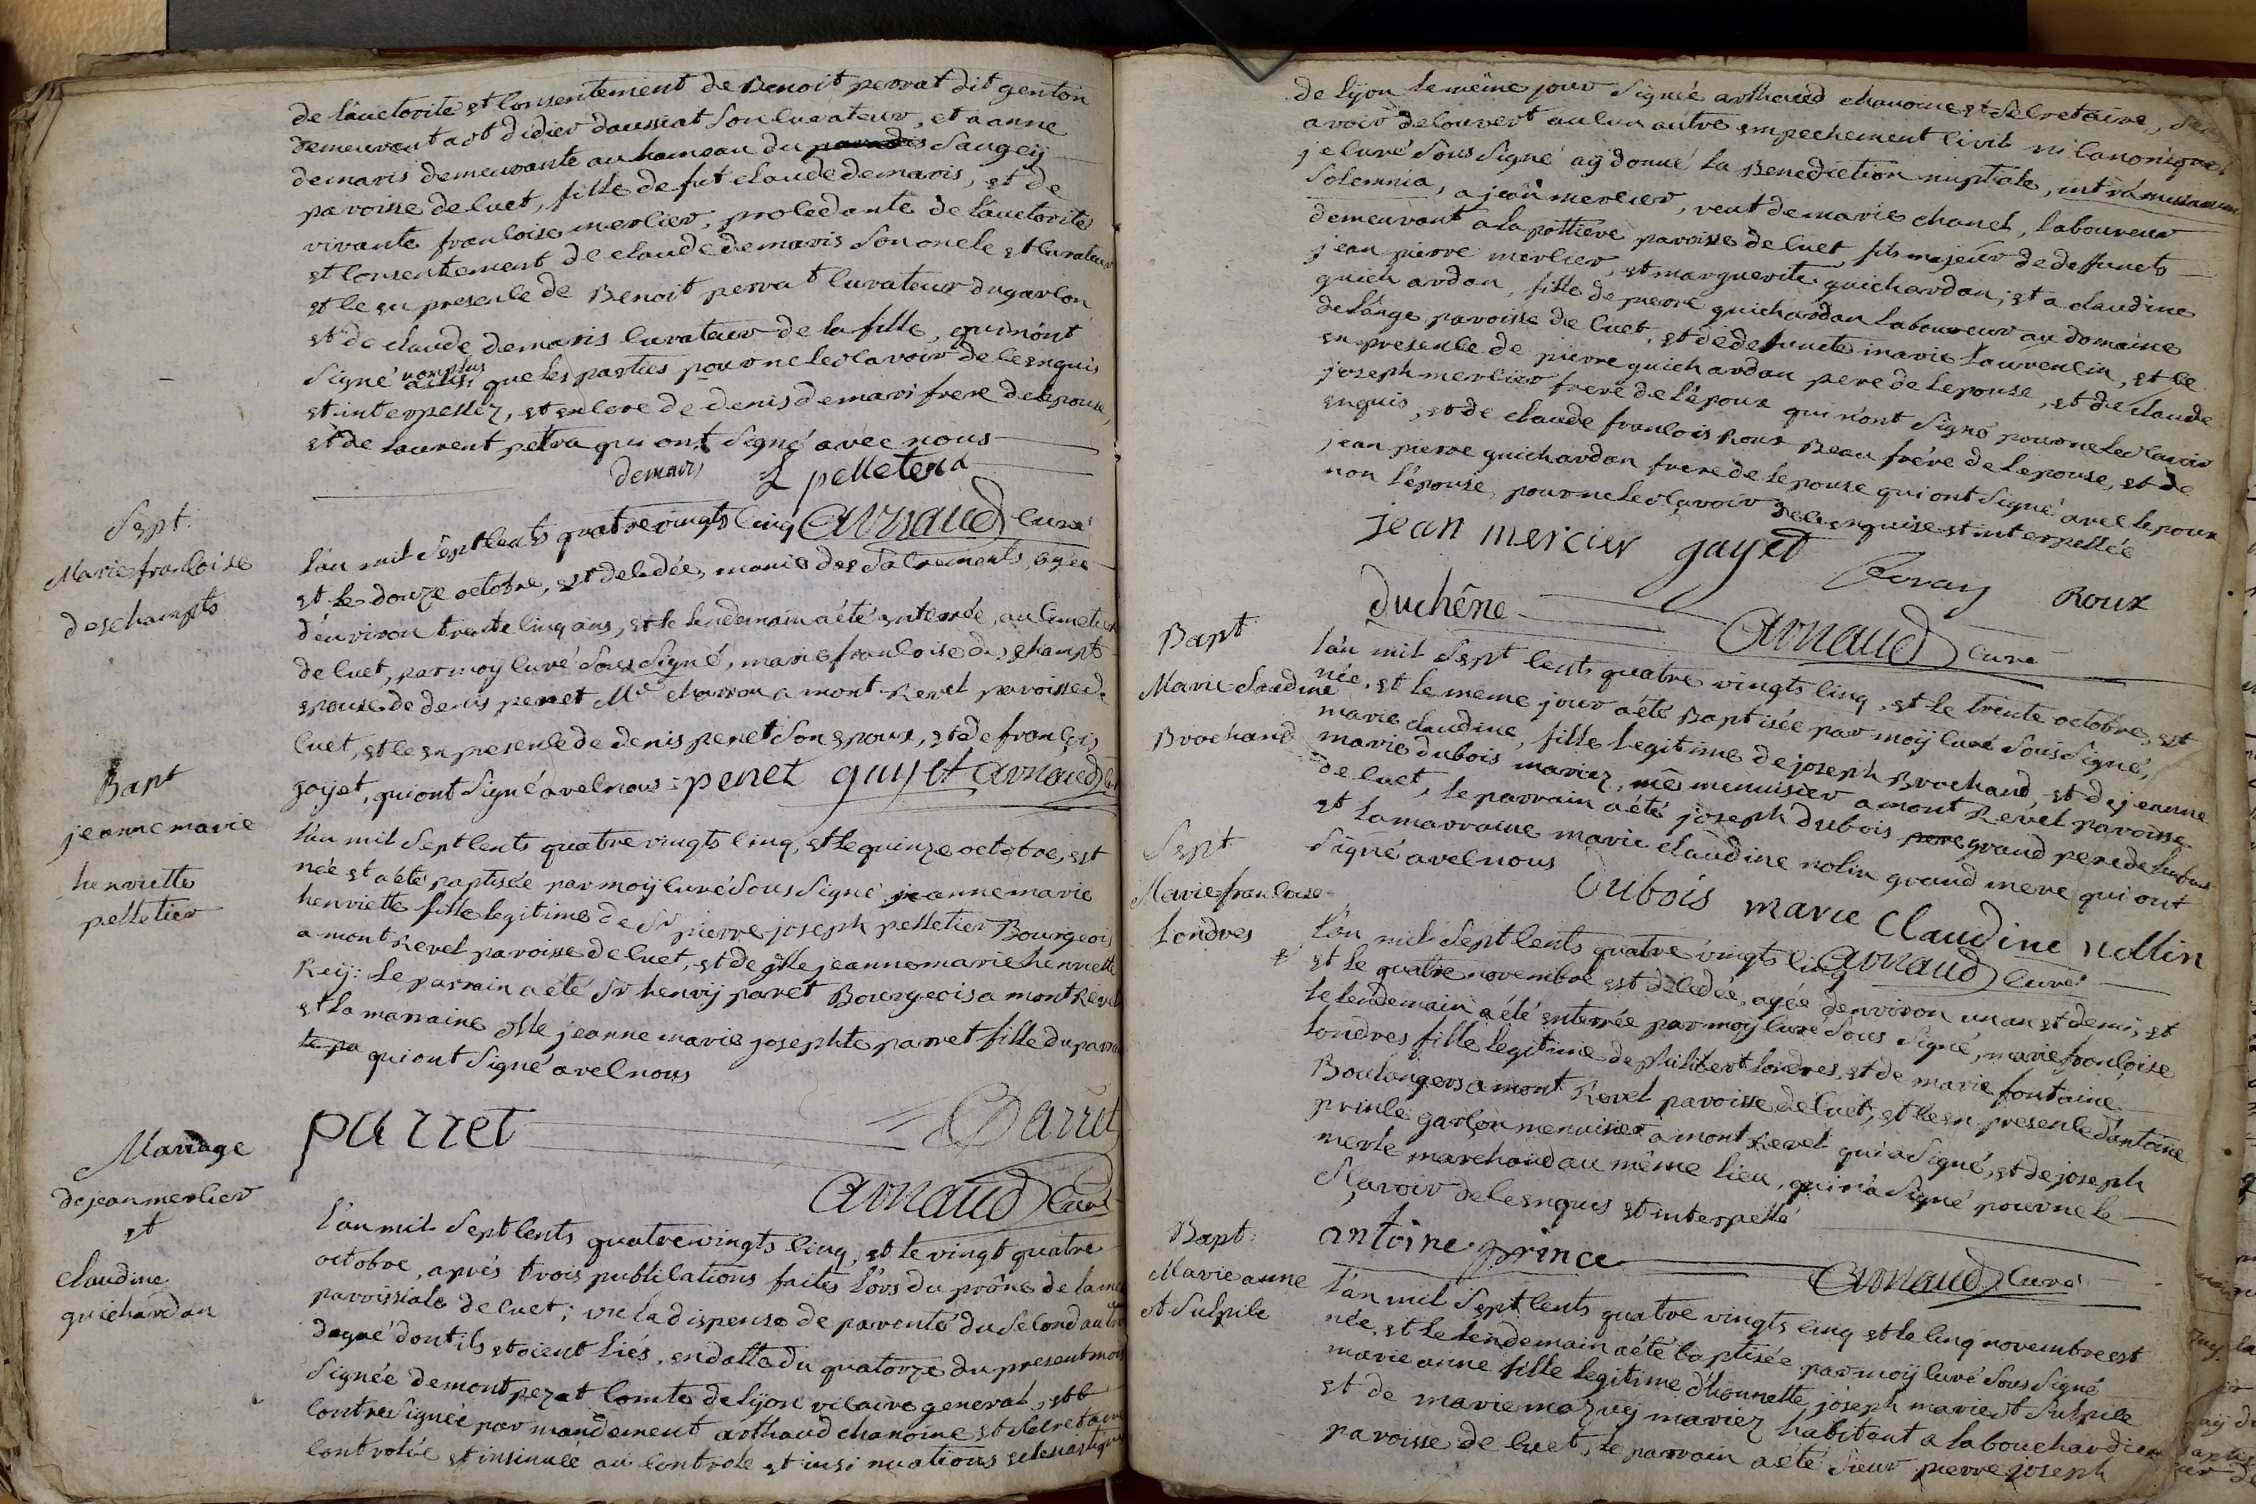 de l'auctorité et consentement de Benoit perrat dit genton
demeurant a st didier daussiat son curateur, et a anne
demaris demeurante au hameau du Saugey
paroisse de cuet, fille de fut claude demaris, et de
vivante francoise mercier, procedante de l'auctorité
et consentement de claude demaris son oncle et curateur
et ce en presence de Benoit perrat curateur du garcon
et de claude demaris curateur de la fille, qui n'ont
signé non plus que les parties pour ne le sçavoir de ce enquis
et interpellez, et encore de denis demari frere de l'epouse,
et de laurent petra qui ont signé avec nous
demari L pelletera
Arnaud curé
Sept:
Marie francoise
deschampts
L'an mil sept cents quatre vingts cinq
et le douze octobre, est decedée, munie des Sacrements, agée
d'environ trente cinq ans, et le lendemain a été enterrée, au cimetiere
de cuet, par moy curé sous signé, marie francoise deschampts
epouse de denis penet Me charron a mont Revel paroisse de
cuet, et ce en presence de denis penet son epoux, et de francois
gayet, qui ont signé avec nous: penet gayet Arnaud curé
Bapt
jeanne marie
henriette
pelletier
L'an mil sept cents quatre vingts cinq, et le quinze octobre, est
née et a été baptisée par moy curé sous signé jeanne marie
henriette fille legitime de Sr pierre joseph pelletier Bourgeois
a mont Revel paroisse de cuet, et de dlle jeanne marie henriette
Rey: le parrain a été Sr henry parret Bourgeois a mont Revel
et la marraine dlle jeanne marie josephte parret fille du parrain
qui ont signé avec nous
parret Parret
Arnaud Curé
Mariage
de jean mercier
et
claudine
guichardan
L'an mil sept cents quatre vingts cinq, et le vingt quatre
octobre, aprés trois publications faites lors du prône de la messe
paroissiale de cuet; vu la dispense de parenté du second au
degré dont ils etoient liés, en datte du quatorze du present mois
signée de montpezat Comte de lyon vicaire general, et
contresignée par mandement arthaud chanoine et secretaire
controlée et insinuée au controle et insinuations eclesiastiques
de lyon le même jour signée arthaud chanoine et secretaire, sans
avoir decouvert aucun autre empechement civil ni canonique
je curé sous signé ay donné la Benediction nuptiale, intra missarum
solemnia, a jean mercier, veuf de marie chanel, laboureur
demeurant a la pottiere paroisse de cuet, fils majeur de deffuncts
jean pierre mercier, et marguerite guichardan; et a claudine
guichardan, fille de pierre guichardan laboureur au domaine
de l'ange paroisse de cuet, et de defuncte marie laurencin, et ce
en presence de pierre guichardan pere de l'epouse, et de claude
joseph mercier frere de l'époux qui n'ont signé pour ne le sçavoir
enquis, et de claude francois Roux Beau frére de l'epouse, et de
jean pierre guichardan frere de l'epouse qui ont signé avec l'epoux
non l'épouse, pour ne le sçavoir de ce enquise et interpellée
jean mercier gayet Roux
duchêne Arnaud curé
Bapt
Marie claudine
Brochand
L'an mil sept cents quatre vingts cinq, et le trente octobre, est
née, et le meme jour a été Baptisée par moy curé sous signé,
marie claudine, fille legitime de joseph Brochand, et de jeanne
marie dubois mariez, me menuisier a mont Revel paroisse
de cuet, le parrain a été joseph dubois grand pere de l'enfant
et la marraine marie claudine nolin grand mere qui ont
signé avec nous Dubois marie Claudine nollin
Arnaud curé
Sept
Marie francoise
Londres
L'an mil sept cents quatre vingts cinq
et le quatre novembre est décedée, agée d'environ un an et demi, et
le lendemain a été enterrée par moy curé sous signé, marie francoise
londres fille legitime de philibert londres, et de marie fontaine
Boulangers a mont Revel paroisse de cuet, et ce en presence d'antoine
prince garçon menuisier a mont Revel qui a signé, et de joseph
merle marchand au même lieu, qui n'a signé pour ne le
sçavoir de ce enquis et interpellé
antoine prince Arnaud curé
Bapt:
Marie anne
st Sulpice
L'an mil sept cents quatre vingts cinq et le cinq novembre est
née, et le lendemain a été baptisée par moy curé sous signé
marie anne fille legitime d'honnette joseph marie st Sulpice
et de marie mazuy mariez habitant a la bouchardiere
paroisse de cuet, le parrain a été sieur pierre joseph